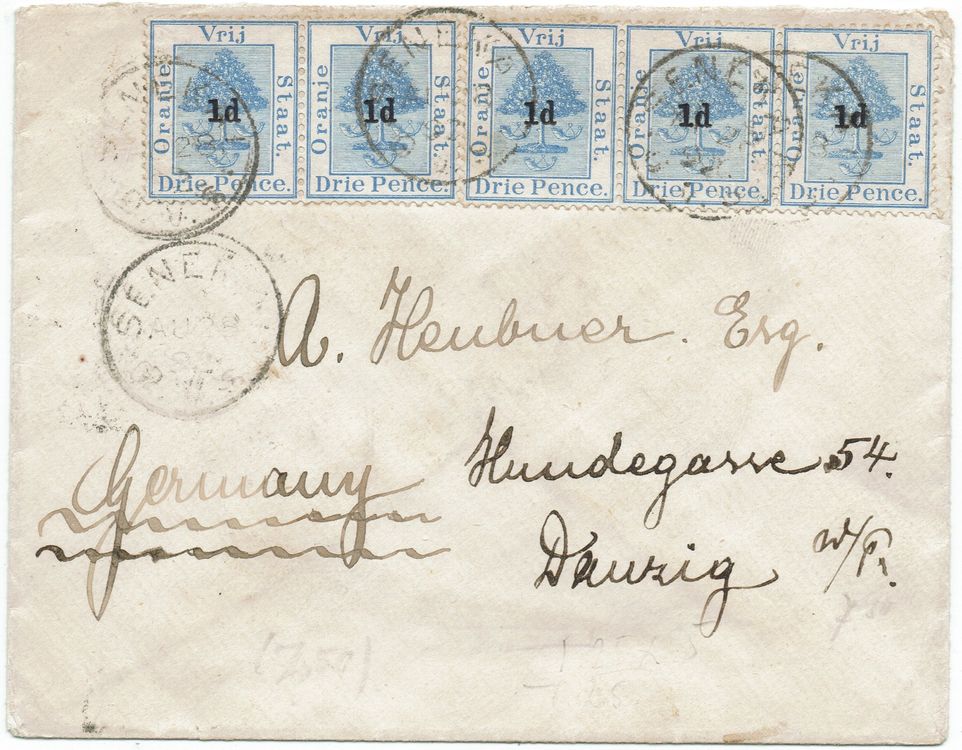 Vrij Vrij Vrij Vrij Vrij
Oranje Staat. Oranje Staat. Oranje Staat. Oranje Staat. Oranje Staat.
1d 1d 1d 1d 1d
Drie Pence. Drie Pence. Drie Pence. Drie Pence. Drie Pence.
SENEKAL
AU 28
A. Heubner. Esq.
Hundegasse 54.
Germany
Danzig w/Pr.